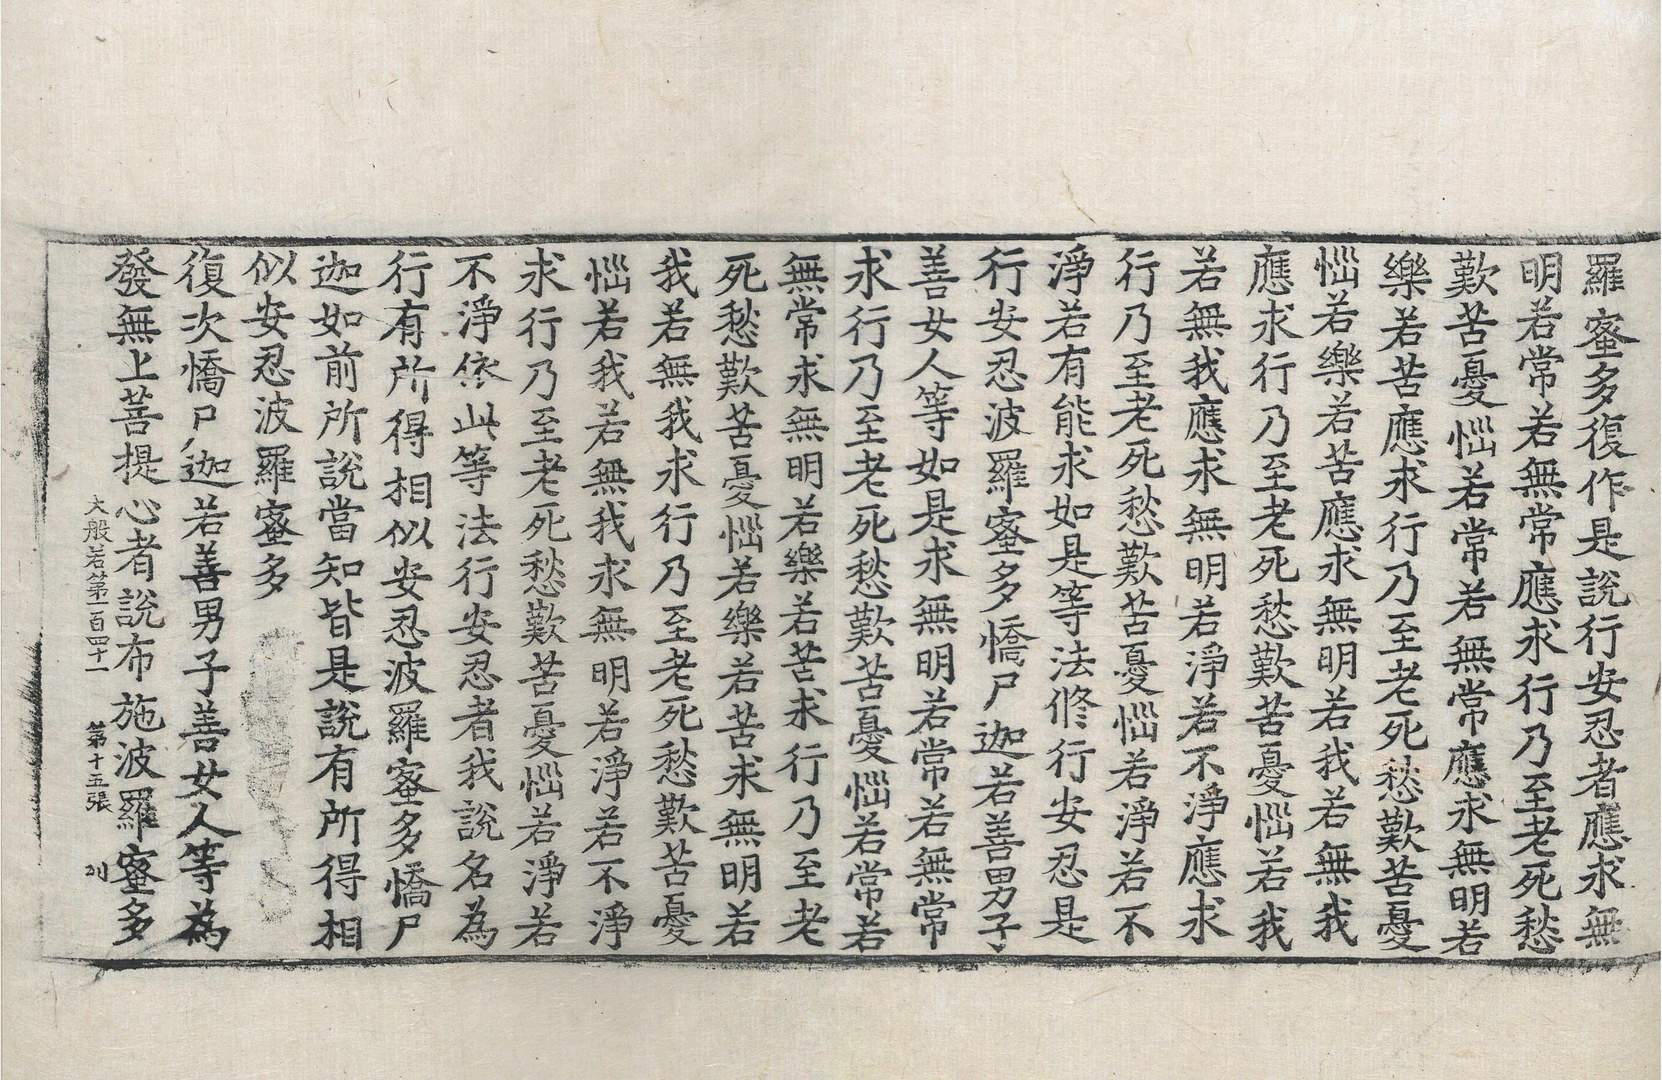 羅蜜多復作是說行安忍者應求無
明若常若無常應求行乃至老死愁
歎苦憂惱若常若無常應求無明若
樂若苦應求行乃至老死愁歎苦憂
惱若樂若苦應求無明若我若無我
應求行乃至老死愁歎苦憂惱若我
若無我應求無明若淨若不淨應求
行乃至老死愁歎苦憂惱若淨若不
淨若有能求如是等法修行安忍是
行安忍波羅蜜多憍尸迦若善男子
善女人等如是求無明若常若無常
求行乃至老死愁歎苦憂惱若常若
無常求無明若樂若苦求行乃至老
死愁歎苦憂惱若樂若苦求無明若
我若無我求行乃至老死愁歎苦憂
惱若我若無我求無明若淨若不淨
求行乃至老死愁歎苦憂惱若淨若
不淨依此等法行安忍者我說名為
行有所得相似安忍波羅蜜多憍尸
迦如前所說當知皆是說有所得相
似安忍波羅蜜多
復次憍尸迦若善男子善女人等為
發無上菩提心者說布施波羅蜜多
大般若第一百四十一　第十五張　列